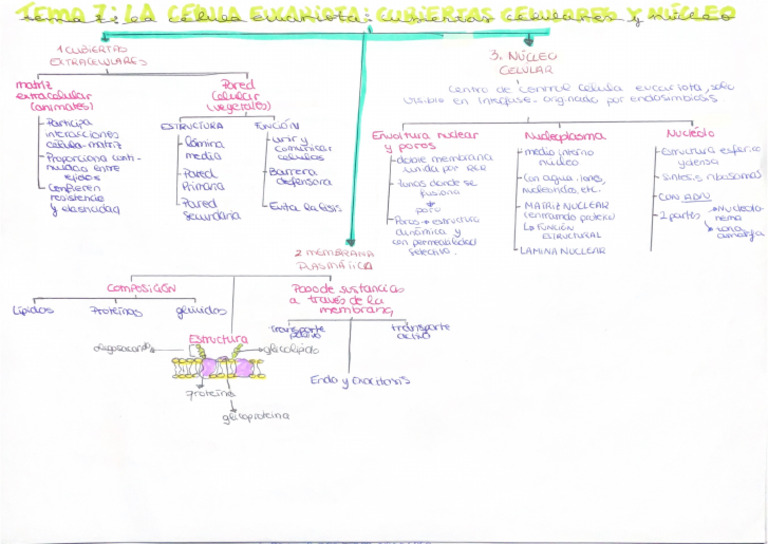 TEMA 7: LA CÉLULA EUCARIOTA: CUBIERTAS CELULARES Y NÚCLEO
1 CUBIERTAS
EXTRACELULARES
matriz
extracelular
(animales)
- Participa
interacciones
célula-matriz
- Proporciona conti-
nuidad entre
tejidos
- Confieren
resistencia
y elasticidad
Pared
Celular
(vegetales)
ESTRUCTURA
- Lámina
media
- Pared
Primaria
- Pared
Secundaria
FUNCIÓN
- unir y
comunicar
células
- Barrera
defensora
- Evita la lisis
2 MEMBRANA
PLASMÁTICA
COMPOSICIÓN
Lípidos
Proteínas
glúcidos
Estructura
oligosacarido
glicolípido
Proteína
glicoproteína
Paso de sustancias
a través de la
membrana
transporte
pasivo
Endo y Exocitosis
transporte
activo
3. NÚCLEO
CELULAR
Centro de control célula eucariota, solo
visible en interfase. originado por endosimbiosis.
Envoltura nuclear
y poros
- doble membrana
unida por RER
- zonas donde se
fusiona
poro
Poros → estructura
dinámica y
con permeabilidad
selectiva.
Nucleoplasma
- medio interno
núcleo
- Con agua, iones,
nucleótidos, etc.
- MATRIZ NUCLEAR
entramado proteico
↳ FUNCIÓN
ESTRUCTURAL
- LAMINA NUCLEAR
Nucléolo
- Estructura esférica
y densa
- síntesis ribosomas
- CON ADN
- 2 partes → Nucleolo-
nema
→ zona
amorfa